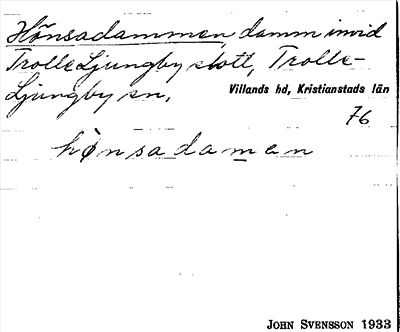 Hönsadammen, damm invid
Trolle Ljungby slott, Trolle-
Ljungby sn, Villands hd, Kristianstads län
76
hønsadamen
JOHN SVENSSON 1933